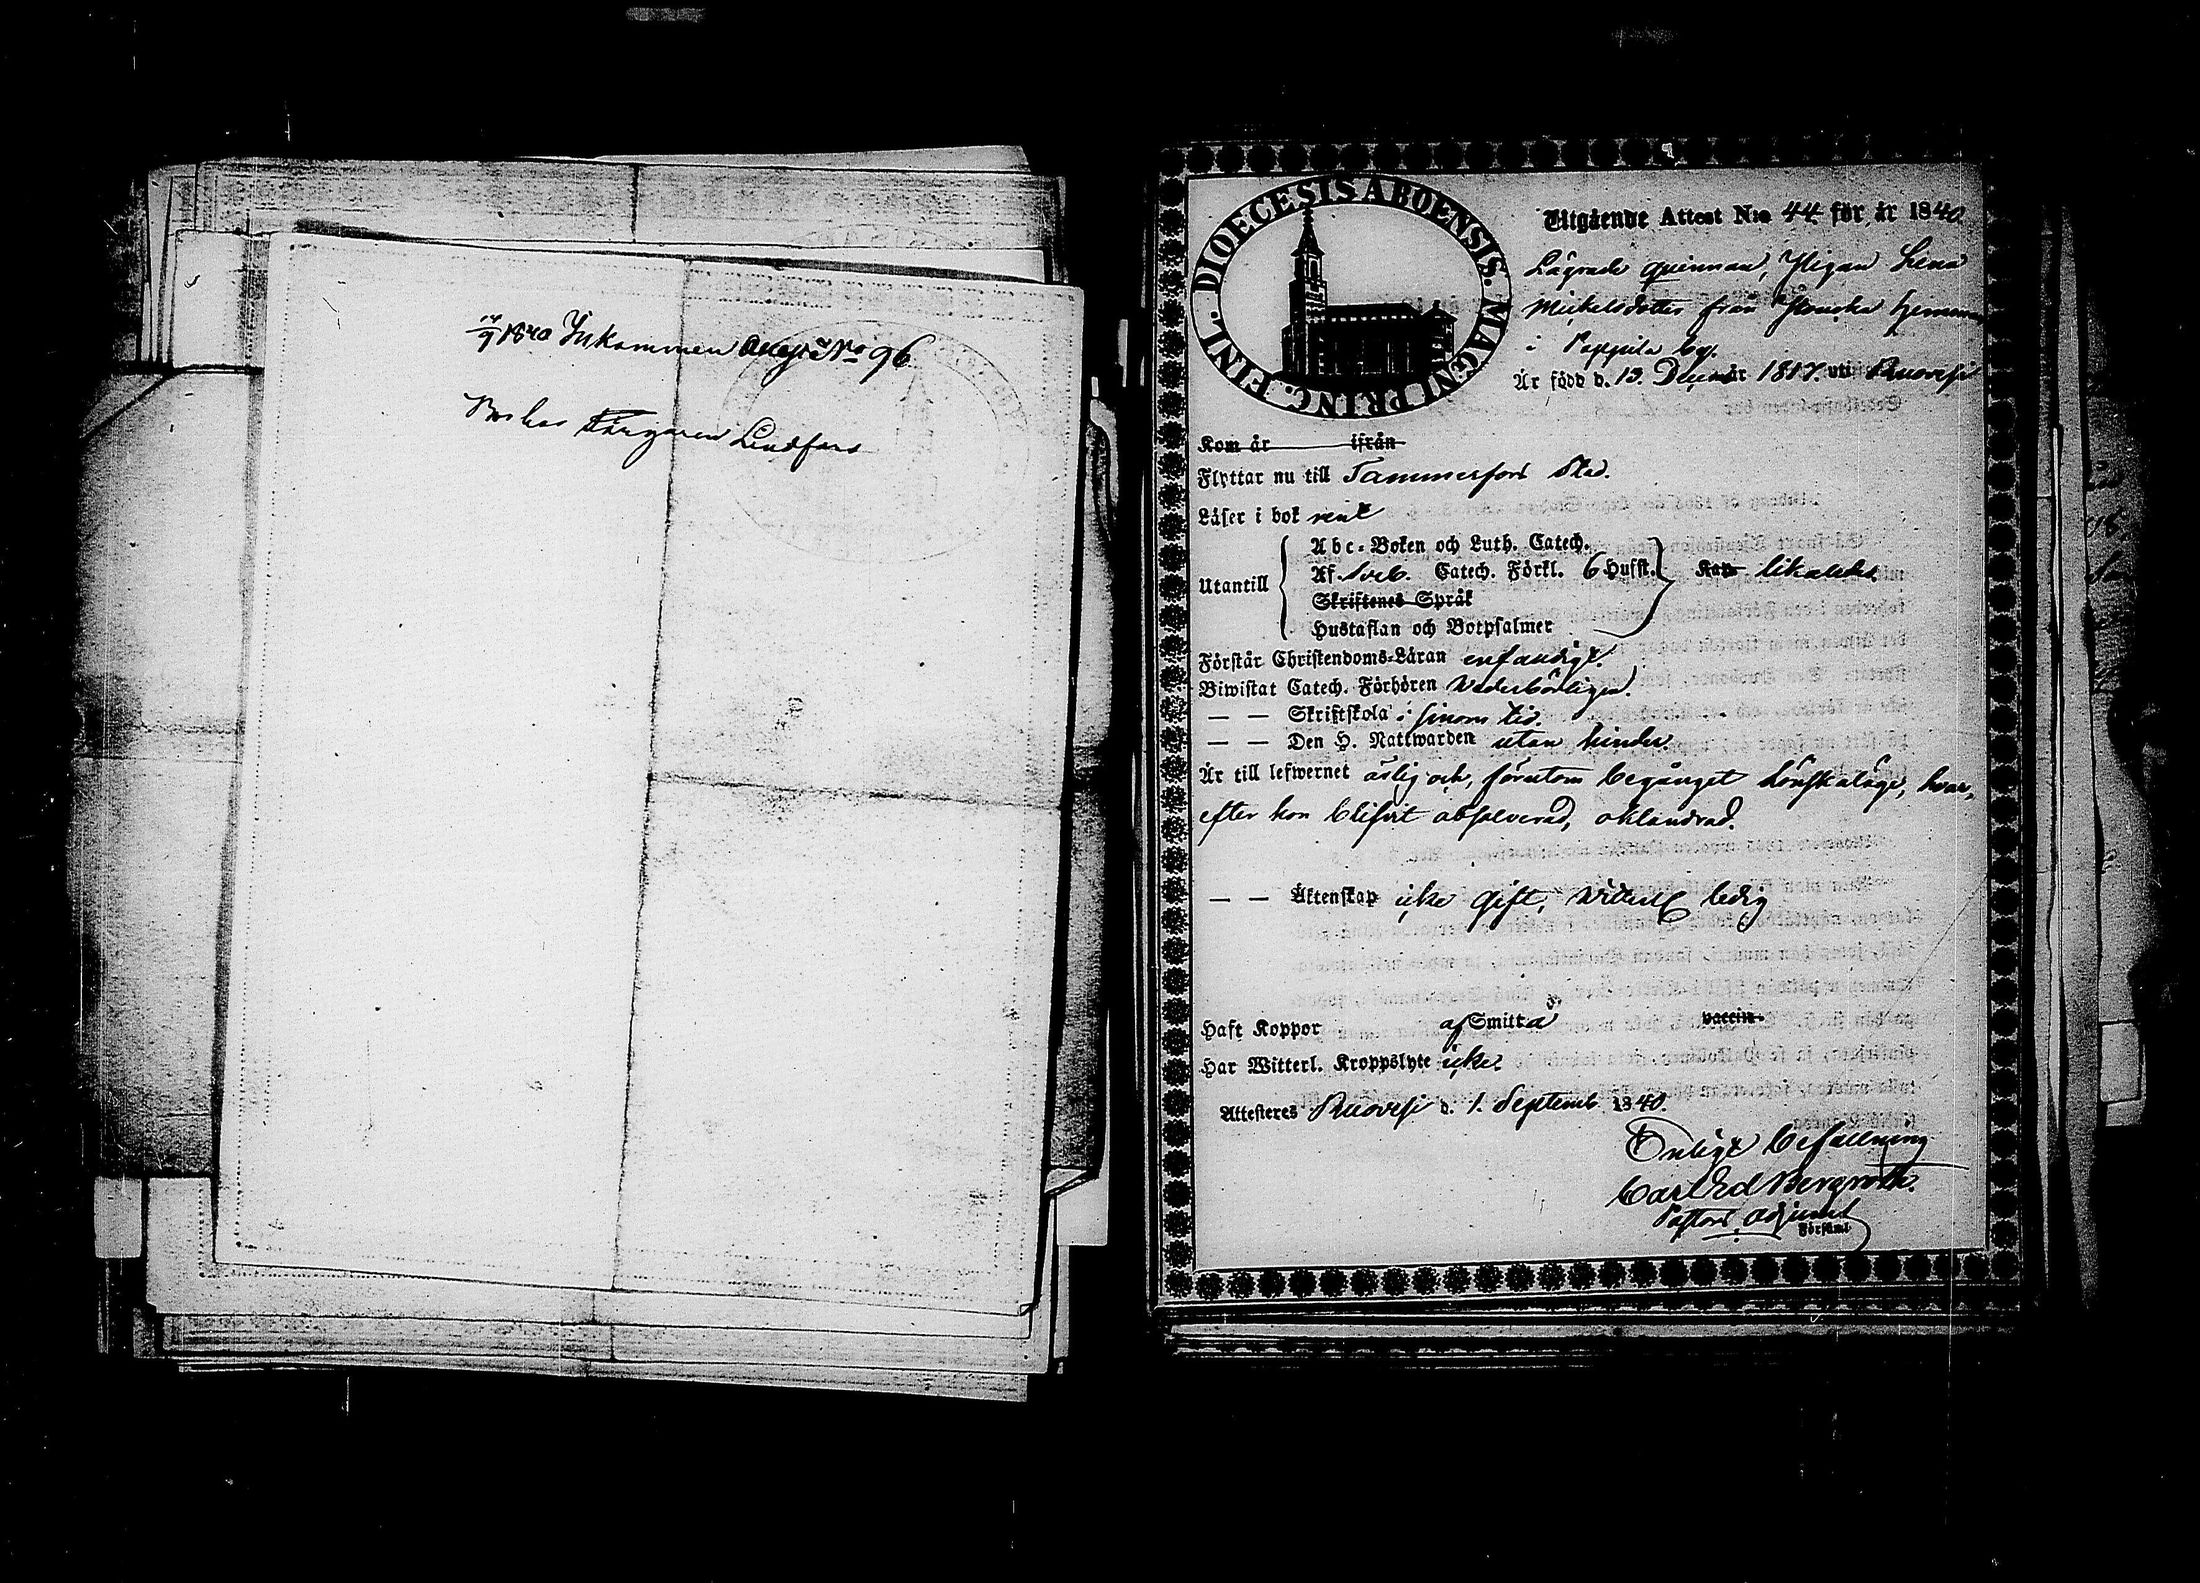 14/9 1840 Inkommen Attest No 96
Bor hos Färgaren Lindfors
DIOECESIS ABOENSIS. MAGNI PRINC. FINL.
Utgående Attest N:o 44 för år 1840.
Lägrade qvinnan, Pigan Lena
Mickelsdotter från hemman
i Pappila by.
Är född d. 13. Decem år 1817. uti Ruovesi
Kom år ifrån
Flyttar nu till Tammerfors Stad.
Läser i bok rent
Utantill
Abc-Boken och Luth. Catech.
Af Sveb. Catech. Förkl. 6 Hufst. Kan likaledes
Skriftenes Språk
Hustaflan och Botpsalmer
Förstår Christendoms-Läran enfaldigt.
Biwistat Catech. Förhören Wederbörligen.
— — Skriftskola i sinom tid.
— — Den H. Nattwarden utan hinder.
Är till lefwernet ärlig och, förutom begånget Lönskaläge, hvar-
efter hon blifvit absolverad, oklandrad.
— — Äktenskap icke gift, ledig
Haft Koppor af Smitta vaccin.
Har Witterl. Kroppslyte icke.
Attesteres Ruovesi d. 1. Septemb 1840.
Enligt befallning
Carl Ed Bergroth.
Pastors adjunct
Församl.